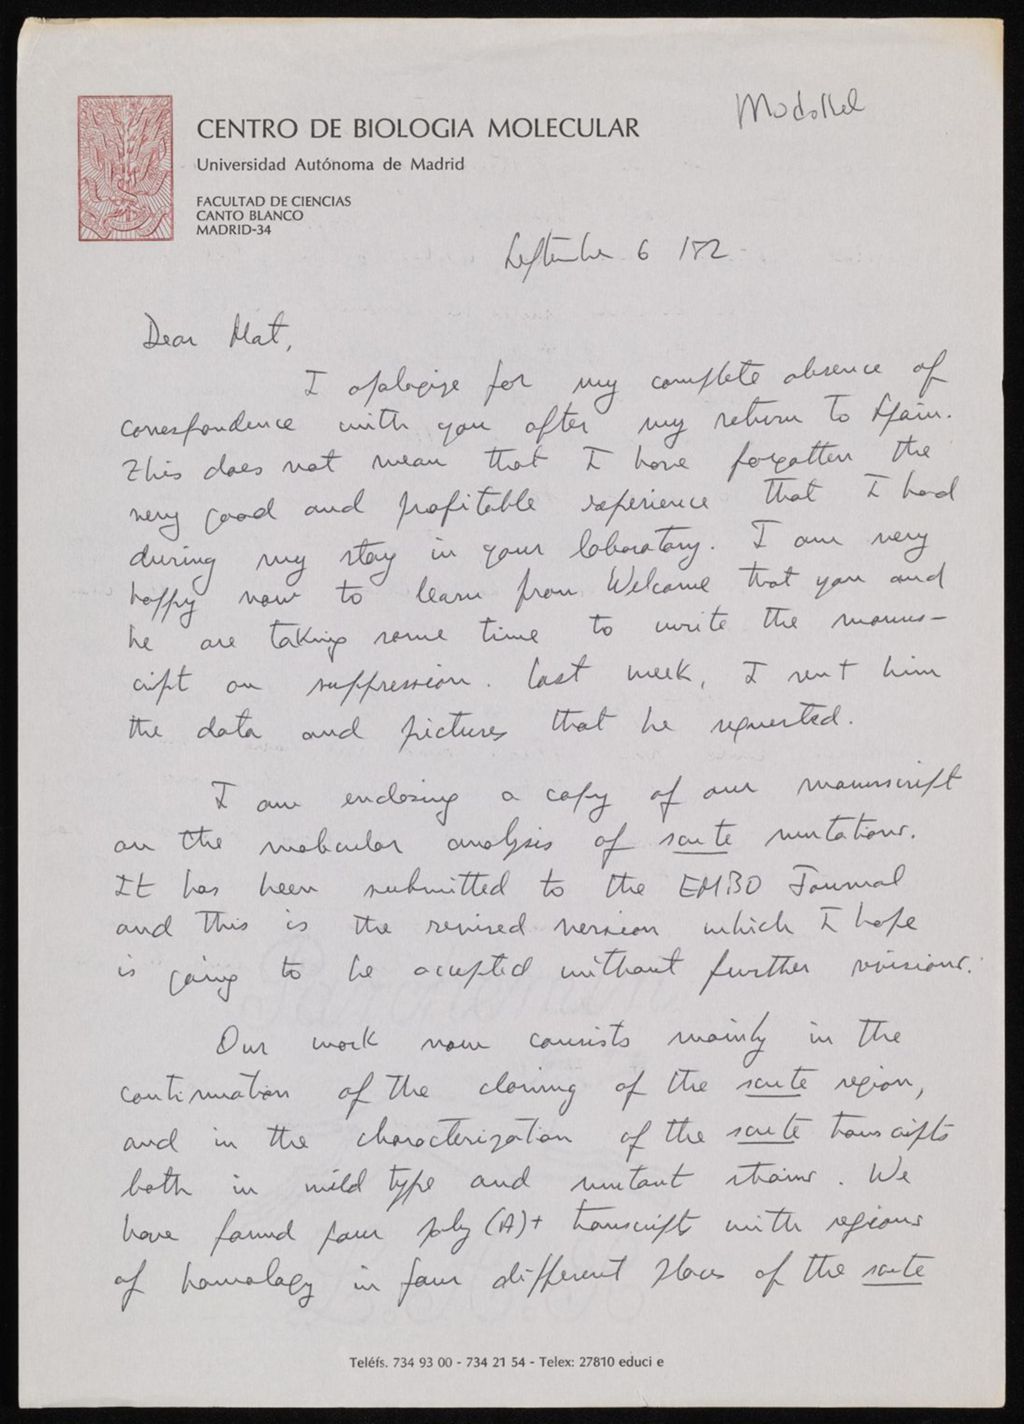 Modolell
CENTRO DE BIOLOGIA MOLECULAR
Universidad Autónoma de Madrid
FACULTAD DE CIENCIAS
CANTO BLANCO
MADRID-34
September 6 182
Dear Mat,
I apologize for my complete absence of
correspondence with you after my return to Spain.
This does not mean that I have forgotten the
very good and profitable experience that I had
during my stay in your laboratory. I am very
happy now to learn from Welcome that you and
he are taking some time to write the manus-
cript on suppression. Last week, I sent him
the data and pictures that he requested.
I am enclosing a copy of our manuscript
on the molecular analysis of scute mutations.
It has been submitted to the EMBO Journal
and this is the revised version which I hope
is going to be accepted without further revisions.
Our work now consists mainly in the
continuation of the cloning of the scute region,
and in the characterization of the scute transcripts
both in wild type and mutant strains. We
have found four poly (A)+ transcripts with regions
of homology in four different places of the scute
Teléfs. 734 93 00 - 734 21 54 - Telex: 27810 educi e